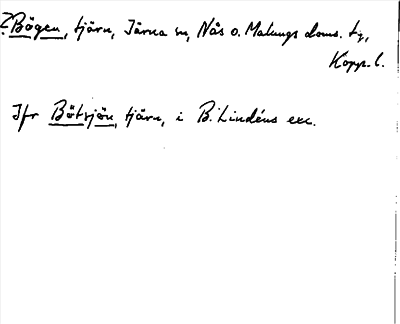 ? Bögen, tjärn, Järna sn, Nås o. Malungs doms. tg,
Kopp. l.
Jfr Båtsjön, tjärn, i B. Lindéns exc.